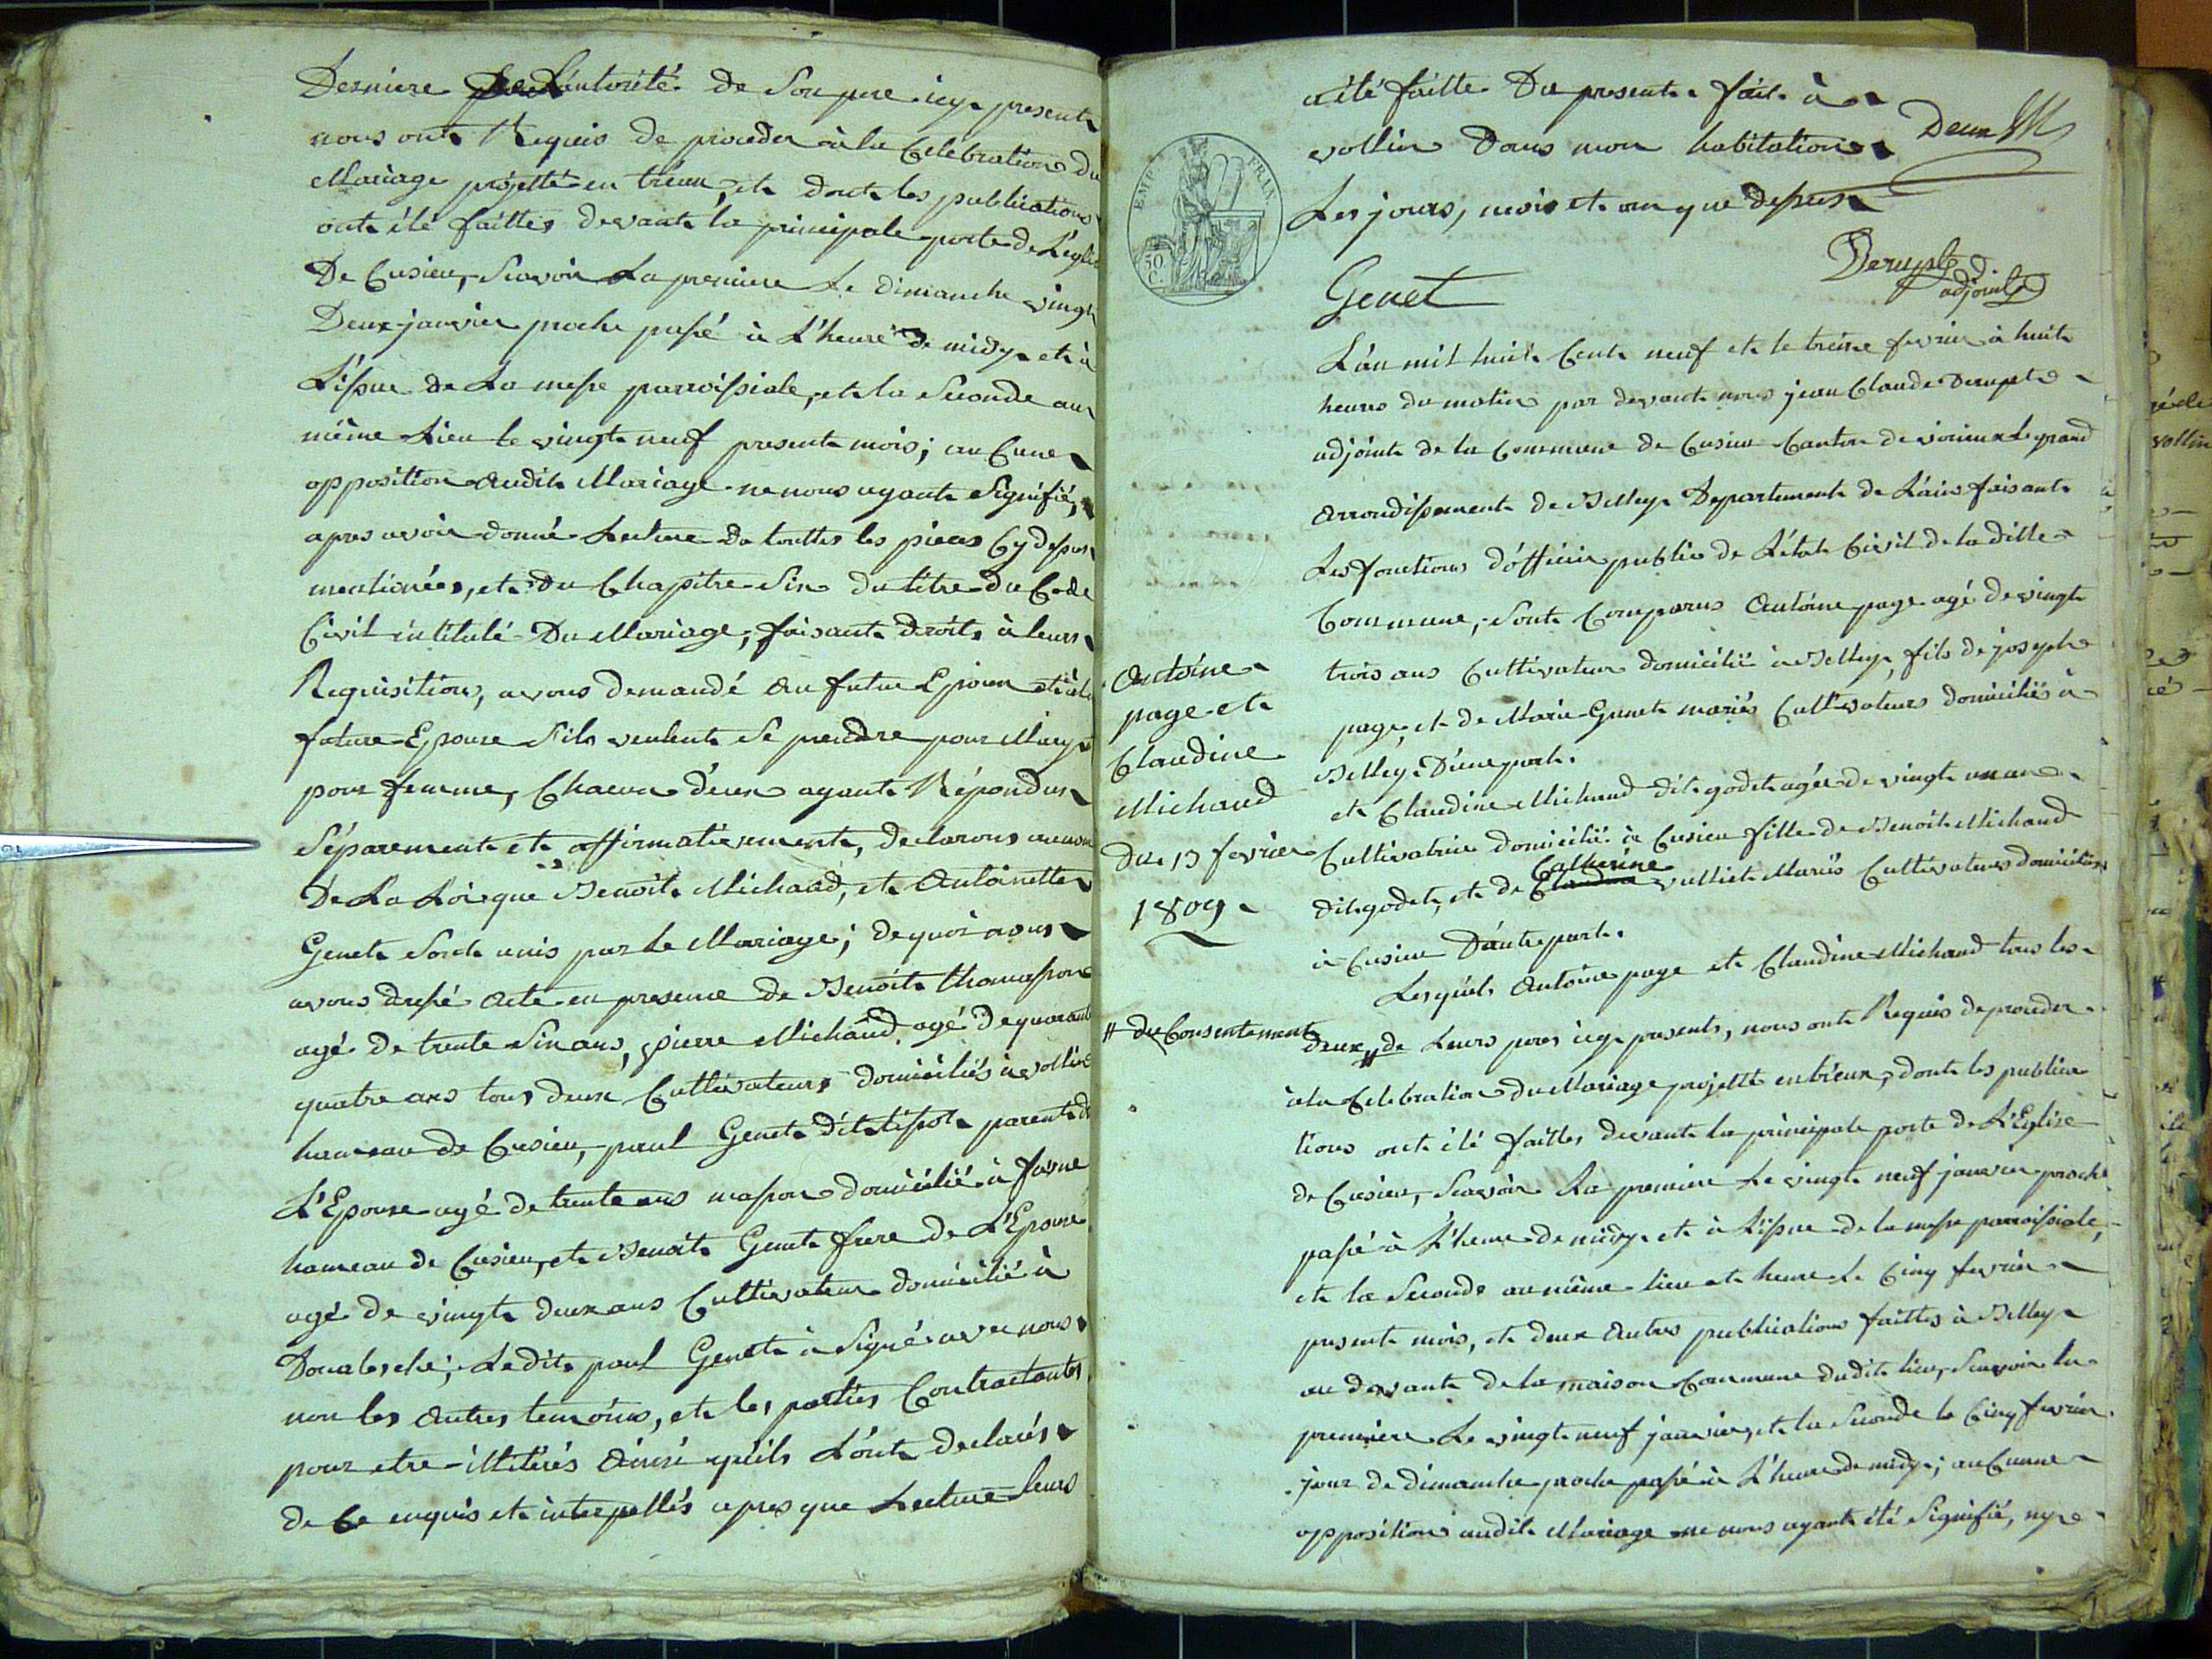 Derniere de L'autorité de Son pere icy present
nous ont Requis de proceder à la Célébration du
Mariage projetté en treux, et dont les publications
ont été faittes devant la principale porte de L'eglise
De Cusieu, Scavoir La premiere Le dimanche vingt
Deux janvier proche passé à L'heure de midy et à
L'issue de La messe parroissiale, et la Seconde au
même Lieu le vingt neuf present mois; au Cune
opposition audit Mariage ne nous ayant Signifié,
apres avoir donné Lecture de touttes les pieces Cy dessus
mentionées, et du Chapitre Six du titre du Code
Civil intitulé Du Mariage, faisant droit à leurs
Requisitions, avons demandé au futur Epoux et à la
future Epouse S'ils veulent Se prendre pour Mary et
pour femme, Chacun d'eux ayant Répondu
Séparement et affirmativement, declarons au nom
De La Loi que Benoit Michaud, et Antoinette
Genet Sont unis par le Mariage; de quoi nous
avons dressé acte en presence de Benoit thomasson
agé de trente Six ans, pierre Michaud agé de quarante
quatre ans tous deux Cultivateurs domiciliés à vollin
hameau de Cusieu, paul Genet dit tissot parent de
L'Epouse agé de trente ans masson domicilié à
hameau de Cusieu, et Benoit Genet frere de L'Epouse
agé de vingt deux ans Cultivateur domicilié à
Ledit paul Genet à Signé avec nous
non les autres temoins, et les parties Contractantes
pour etre illitérés ainsi qu'ils L'ont declarés
de Ce enquis et interpellés apres que Lecture Leurs
a été faitte Du present fait à
vollin Dans mon habitation
Les jours, mois et an que dessus
EMP. FRAN.
50 C.
Genet
Derupt
adjoint
L'an mil huit Cent neuf et le treize fevrier à huit
heures du matin par devant nous jean Claude Derupt
adjoint de la Commune de Cusieu Canton de virieux le grand
arrondissement de Belley Departement de L'ain faisant
Les fonctions d'officier public de L'état Civil de la ditte
Commune, Sont Comparus Antoine page agé de vingt
trois ans Cultivateur domicilié à Belley, fils de joseph
page, et de Marie Genet mariés Cultivateurs domiciliés à
Belley D'une part.
et Claudine Michaud dit godet agée de vingt un ans
Cultivatrice domicilié à Cusieu fille de Benoit Michaud
dit godet, et de Claudine Catherine vulliet Mariés Cultivateurs domiciliés
à Cusieu D'autre part.
Antoine
page et
Claudine
Michaud
Du 13 fevrier
1809.
Lesquels Antoine page et Claudine Michaud tous les
# du Consentement
deux # de Leurs peres icy presents, nous ont Requis de proceder
à la Celebration du Mariage projetté entr'eux, dont les publica
tions ont été faittes devant la principale porte de L'Eglise
de Cusieu, Scavoir La premiere Le vingt neuf janvier proche
passé à L'heure de midy et à L'issue de la messe parroissiale,
et la Seconde au même lieu et heure Le Cinq fevrier
present mois, et deux Autres publications faittes à Belley
au devant de la maison Commune dudit lieu, Scavoir la
premiere Le vingt neuf janvier, et la Seconde le Cinq fevrier
jour de dimanche proche passé à L'heure de midy; au Cunne
opposition audit Mariage ne nous ayant été Signifié, nyre